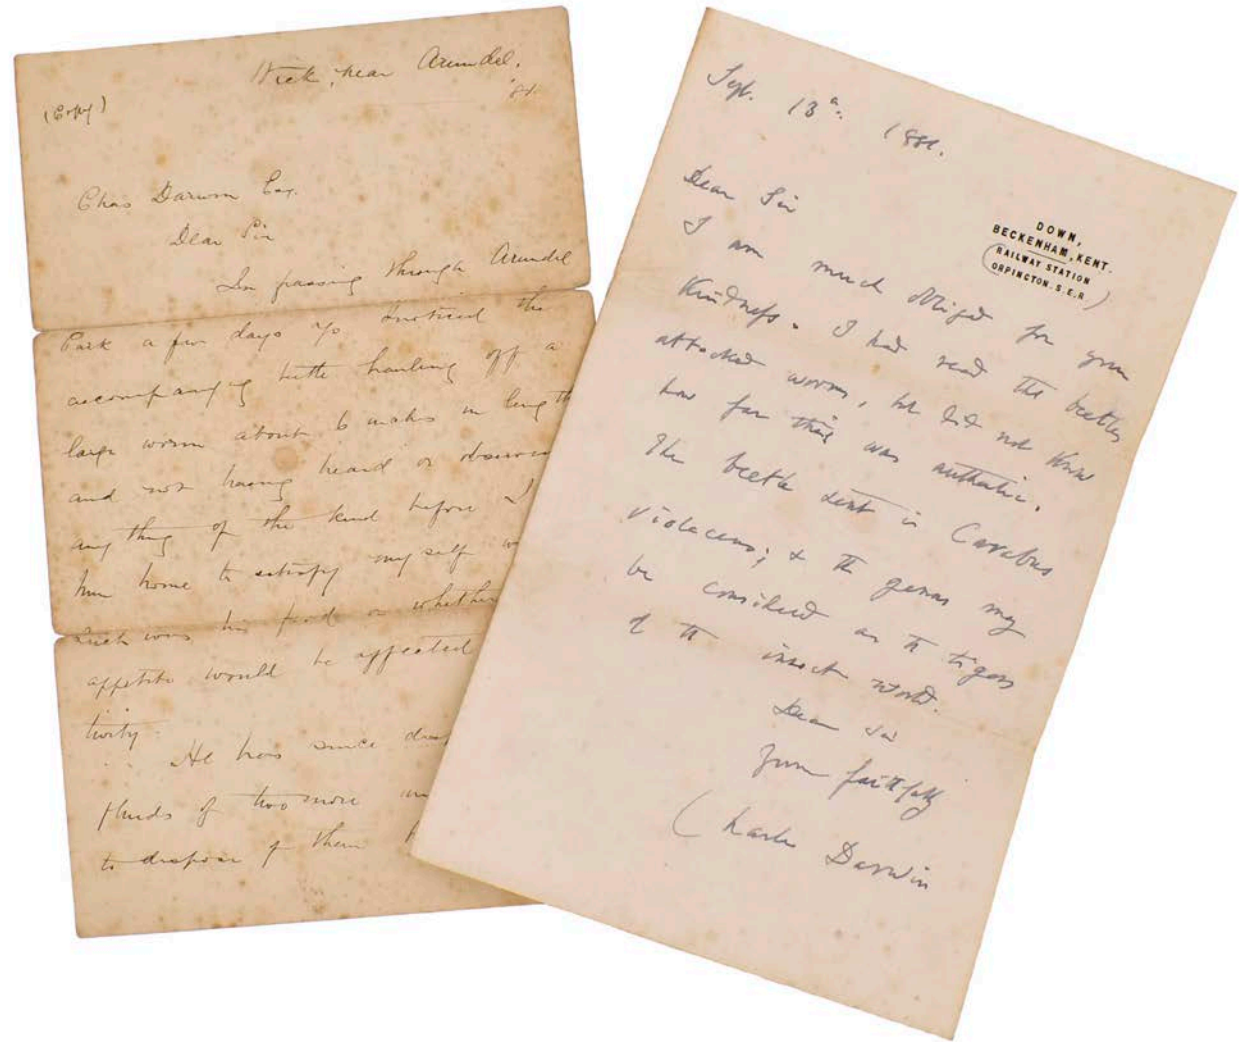 Wick, near Arundel,
'81.
(Copy)
Chas Darwin Esq.
Dear Sir
In passing through Arundel
Park a few days ago I noticed the
accompanying beetle hauling off a
large worm about 6 inches in length
and not having heard or observed
any thing of the kind before I
him home to satisfy myself
such was his food or whether
appetite would be affected
tivity.
He has since
thirds of two more
to dispose of them
Sept. 13th 1881.
DOWN,
BECKENHAM, KENT.
RAILWAY STATION
ORPINGTON. S.E.R.
Dear Sir
I am much obliged for your
kindness. I had read the beetles
attacked worms, but did not know
how far this was authentic.
The beetle sent is Carabus
violaceus; & the genus may
be considered as the tigers
of the insect world.
Dear Sir
Yours faithfully
Charles Darwin